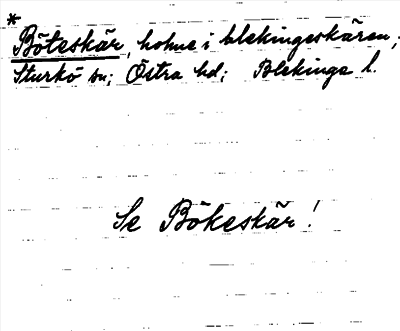 *
Böteskär, holme i blekingeskären;
Sturkö sn; Östra hd; Blekinge l.
Se Bökeskär!